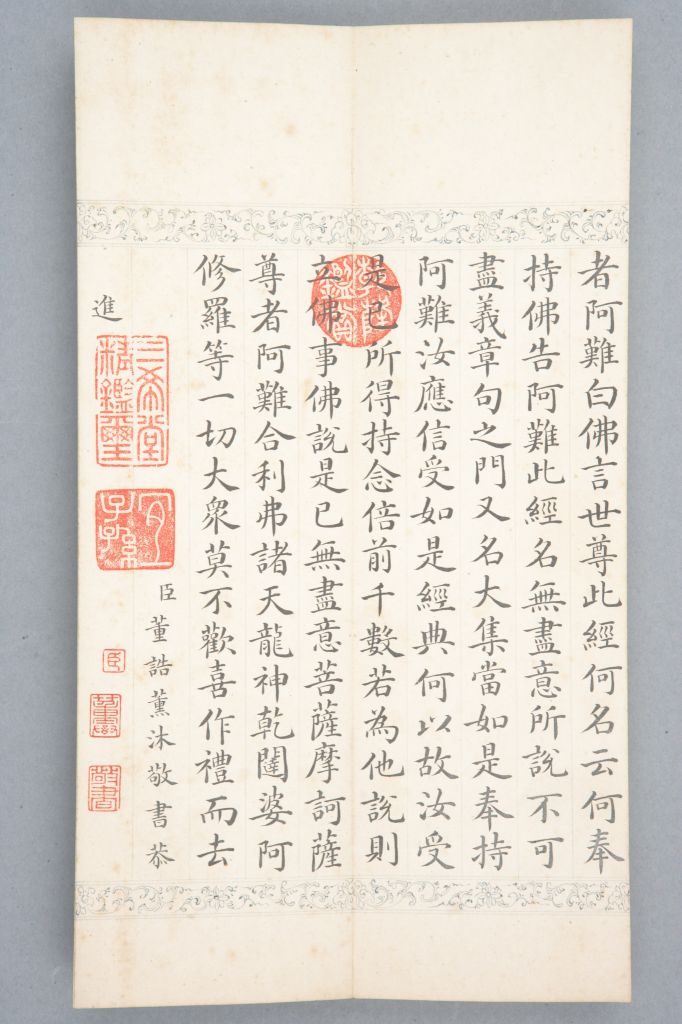 者阿難白佛言世尊此經何名云何奉
持佛告阿難此經名無盡意所說不可
盡義章句之門又名大集當如是奉持
阿難汝應信受如是經典何以故汝受
是已所得持念倍前千數若為他說則
立佛事佛說是已無盡意菩薩摩訶薩
尊者阿難合利弗諸天龍神乾闥婆阿
修羅等一切大眾莫不歡喜作禮而去
臣董誥薰沐敬書恭
進
乾隆鑑賞
三希堂精鑑璽
宜子孫
臣
敬書